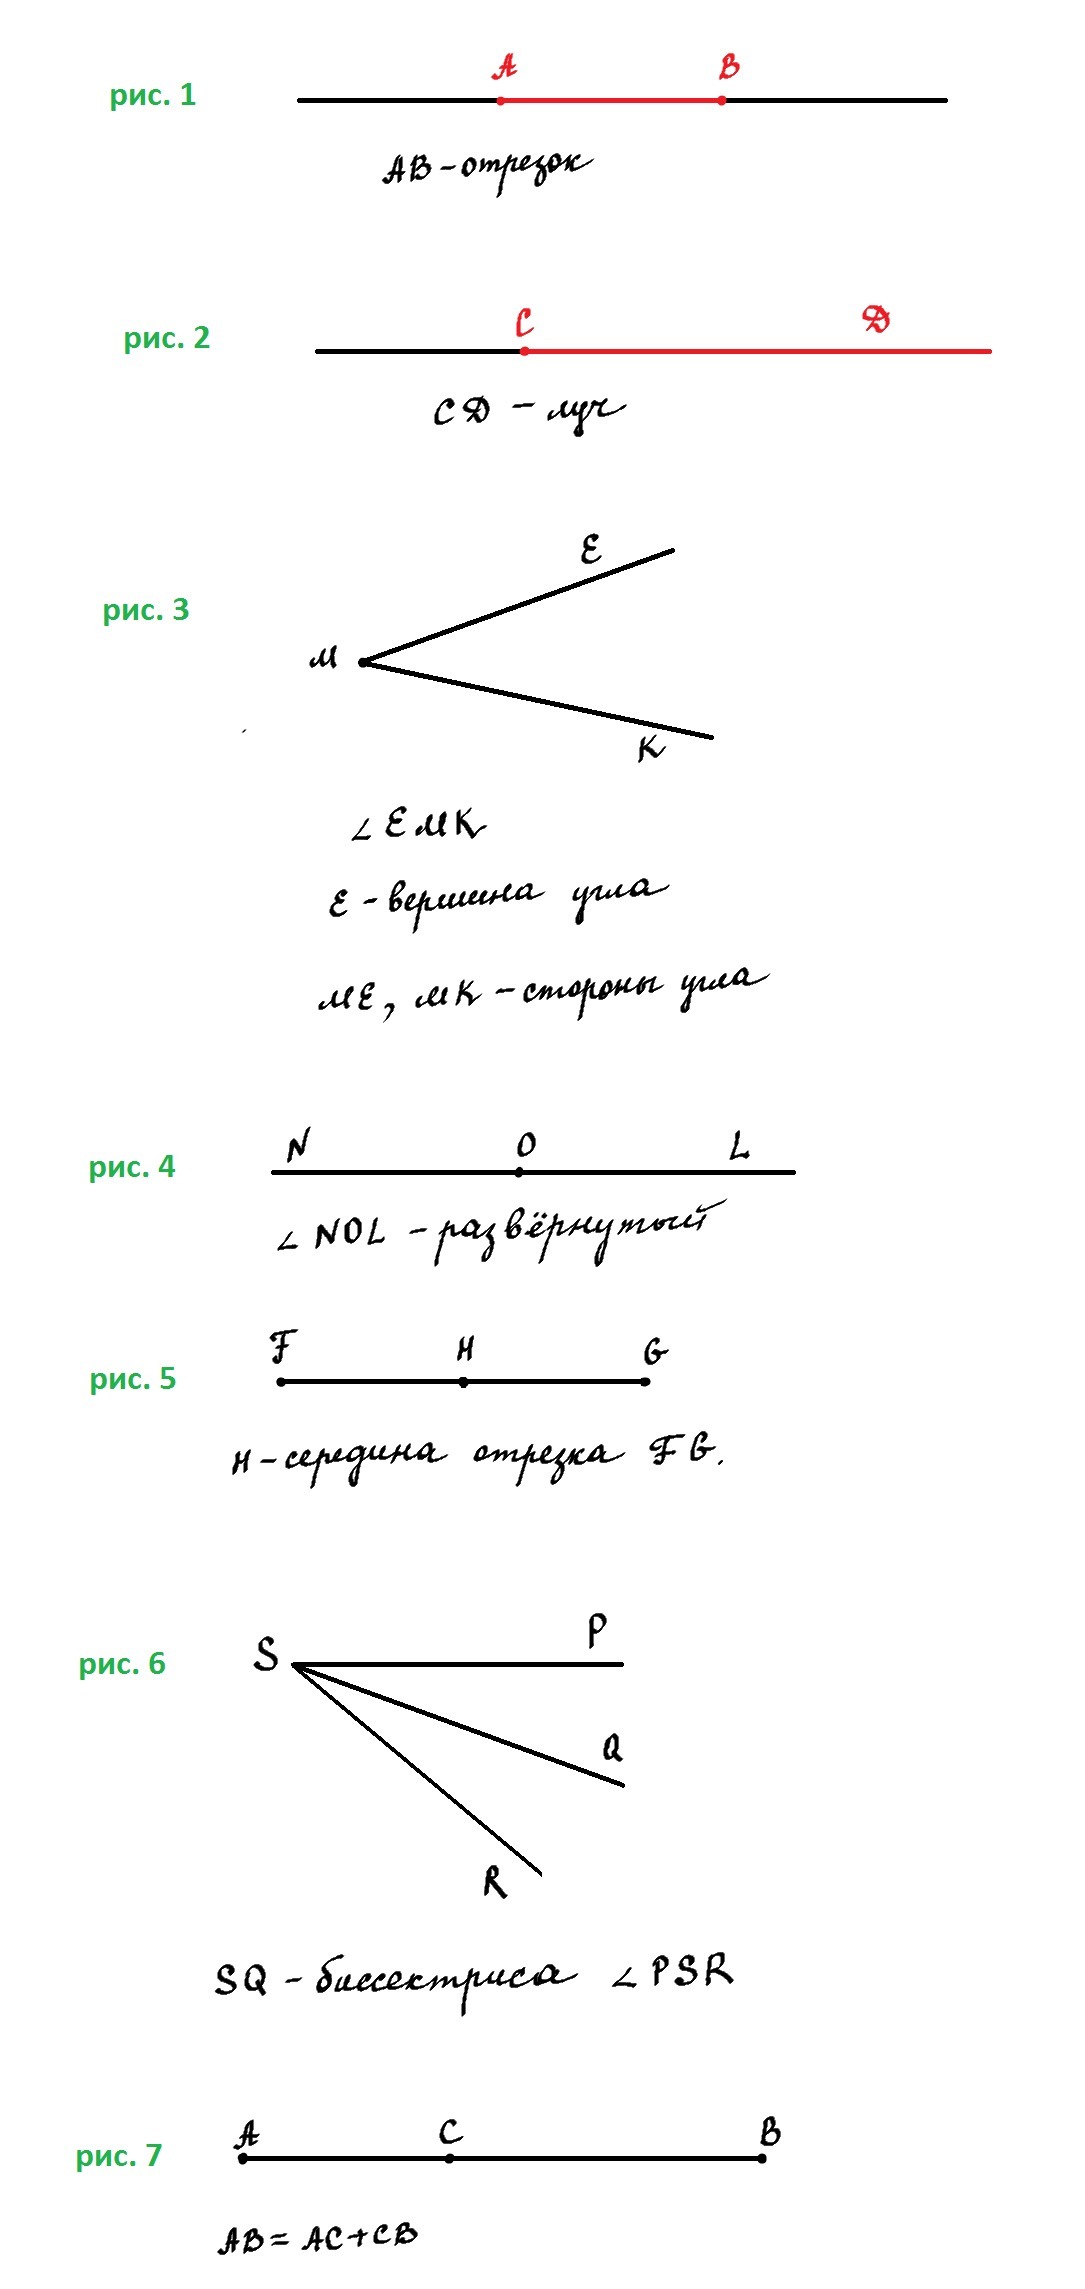 рис. 1
A B
AB - отрезок
рис. 2
C D
CD - луч
рис. 3
E
M
K
∠EMK
E - вершина угла
ME, MK - стороны угла
рис. 4
N O L
∠NOL - развёрнутый
рис. 5
F H G
H - середина отрезка FG.
рис. 6
S
P
Q
R
SQ - биссектриса ∠PSR
рис. 7
A C B
AB = AC+CB